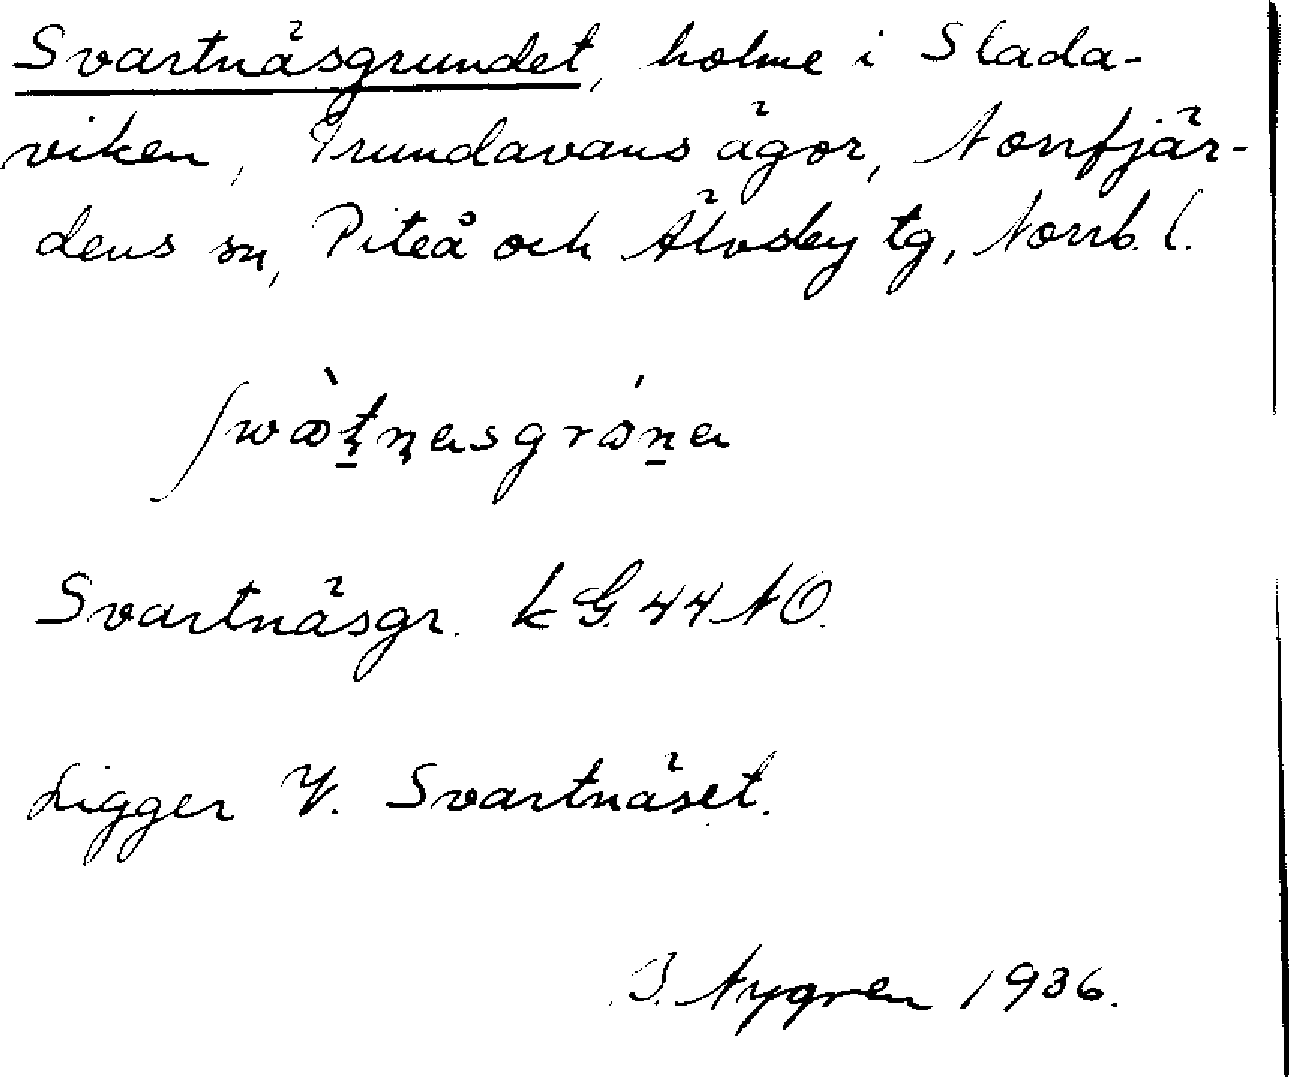 Svartnäsgrundet, holme i Slada-
viken, Trundavans ägor, Norrfjär-
dens sn, Piteå och Älvsby tg, Norrb. l.
Svartnäsgr. kG. 44 NO.
Ligger V. Svartnäset.
Nygren 1936.